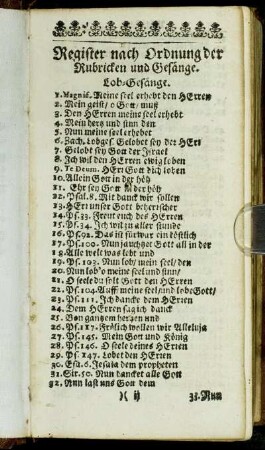 Register nach Ordnung der
Rubricken und Gesänge.
Lob-Gesänge.
1. Magnif. Meine seel erhebt den HErren
2. Mein geist / o Gott / muß
3. Den HErren meine seel erhebt
4. Mein hertz und sinn den
5. Nun meine seel erhebet
6. Zach. Lobges. Gelobet sey der HErr
7. Gelobt sey Gott der Israel
8. Ich wil den HErren ewig loben
9. Te Deum. HErr Gott dich loben
10. Allein Gott in der höh
11. Ehr sey Gott in der höh
12. Psal. 8. Mit danck wir sollen
13. HErr unser Gott beherrscher
14. Ps. 33. Freut euch des HErren
15. Ps. 34. Ich wil zu aller stunde
16. Ps. 92. Das ist fürwar ein köstlich
17. Ps. 100. Nun jauchzet Gott all in der
18. Alle welt was lebt und
19. Ps. 103. Nun lob / mein seel / den
20. Nun lob' o meine seel und sinn /
21. O seele du solt Gott den HErren
22. Ps. 104. Auff meine seel / und lobe Gott /
23. Ps. 111. Ich dancke dem HErren
24. Dem HErren sag ich danck
25. Von gantzem hertzen und
26. Ps. 117. Frölich wollen wir Alleluja
27. Ps. 145. Mein Gott und König
28. Ps. 146. O seele deines HErren
29. Ps. 147. Lobet den HErren
30. Esa. 6. Jesaia dem propheten
31. Sir. 50. Nun dancket alle Gott
32. Nun last uns Gott dem
)( ij
33. Nun